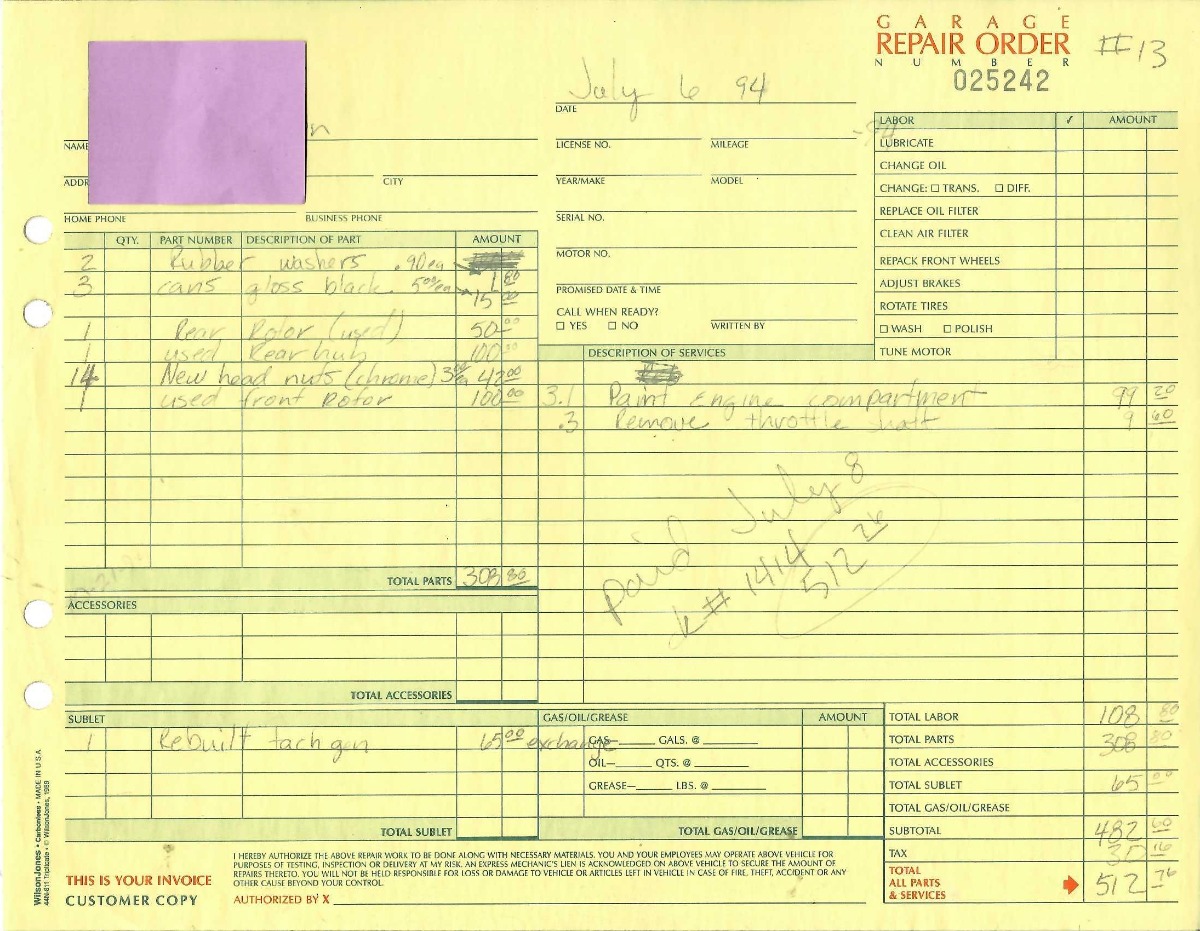 GARAGE
REPAIR ORDER
NUMBER
025242
#13
July 6 94
DATE
NAME
ADDR
CITY
HOME PHONE
BUSINESS PHONE
LICENSE NO.
MILEAGE
YEAR/MAKE
MODEL
SERIAL NO.
MOTOR NO.
PROMISED DATE & TIME
CALL WHEN READY?
☐ YES ☐ NO
WRITTEN BY
LABOR ✓ AMOUNT
LUBRICATE
CHANGE OIL
CHANGE: ☐ TRANS. ☐ DIFF.
REPLACE OIL FILTER
CLEAN AIR FILTER
REPACK FRONT WHEELS
ADJUST BRAKES
ROTATE TIRES
☐ WASH ☐ POLISH
TUNE MOTOR
QTY. PART NUMBER DESCRIPTION OF PART AMOUNT
2 Rubber washers .90 ea 1 80
3 cans gloss black 5 00/ea 15 00
1 Rear Rotor (used) 50 00
1 used Rear hub 100 00
14 New head nuts (chrome) 3 00/ea 42 00
1 used front Rotor 100 00
TOTAL PARTS 308 80
DESCRIPTION OF SERVICES
3.1 Paint Engine compartment 99 20
.3 Remove throttle shaft 9 60
paid July 8
k# 1414
512 76
ACCESSORIES
TOTAL ACCESSORIES
SUBLET
1 Rebuilt tach gen 65 00 exchange
TOTAL SUBLET
GAS/OIL/GREASE AMOUNT
GAS— GALS. @
OIL— QTS. @
GREASE— LBS. @
TOTAL GAS/OIL/GREASE
TOTAL LABOR 108 80
TOTAL PARTS 308 80
TOTAL ACCESSORIES
TOTAL SUBLET 65 00
TOTAL GAS/OIL/GREASE
SUBTOTAL 482 60
TAX 30 16
TOTAL
ALL PARTS
& SERVICES
512 76
I HEREBY AUTHORIZE THE ABOVE REPAIR WORK TO BE DONE ALONG WITH NECESSARY MATERIALS. YOU AND YOUR EMPLOYEES MAY OPERATE ABOVE VEHICLE FOR
PURPOSES OF TESTING, INSPECTION OR DELIVERY AT MY RISK. AN EXPRESS MECHANIC'S LIEN IS ACKNOWLEDGED ON ABOVE VEHICLE TO SECURE THE AMOUNT OF
REPAIRS THERETO. YOU WILL NOT BE HELD RESPONSIBLE FOR LOSS OR DAMAGE TO VEHICLE OR ARTICLES LEFT IN VEHICLE IN CASE OF FIRE, THEFT, ACCIDENT OR ANY
OTHER CAUSE BEYOND YOUR CONTROL.
AUTHORIZED BY X
THIS IS YOUR INVOICE
CUSTOMER COPY
WilsonJones • Carbonless • MADE IN U.S.A
44N-811 Triplicate • © WilsonJones, 1989